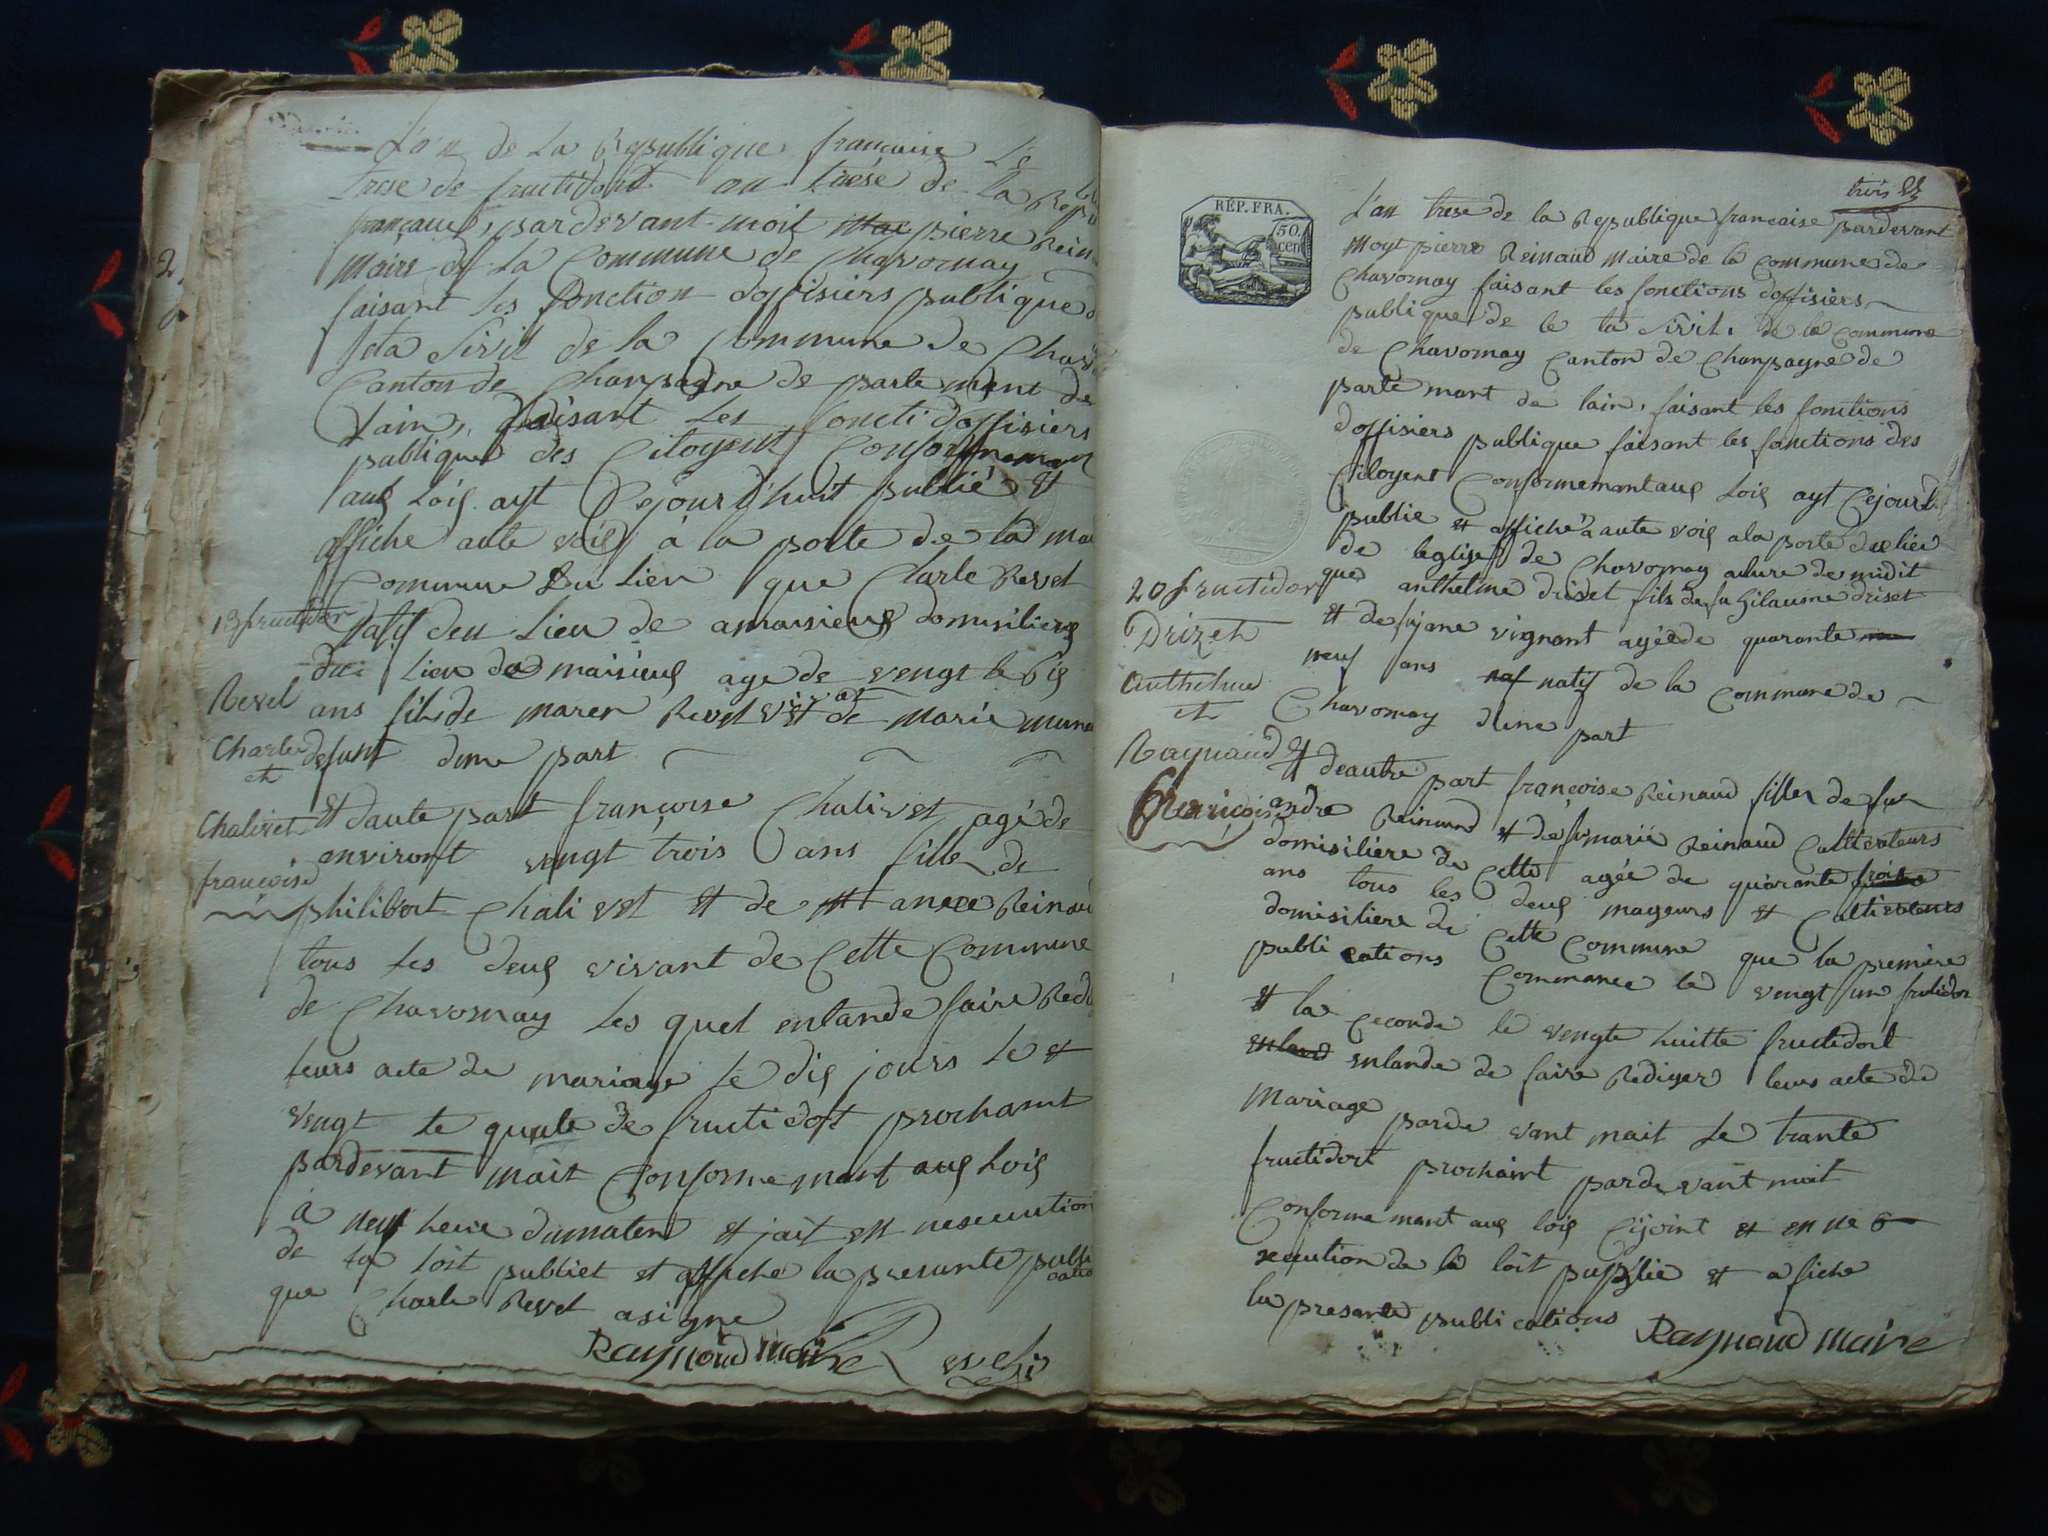 L'an de la Republique francaise le
trese de fructidort an trese de la Repu
francaise, pardevant moit pierre Rein
maire de la Commune de Chavornay
faisant les fonction doffisiers publique d
leta sivil de la Commune de Chav
Canton de Chanpagne de parte ment de
Lain, faisant les foncti doffisiers
publique des Citoyent Conformemant
aux Loix ayt Cejourd'huit publié et
affiche aute voix à la porte de la mai
Commune du Lieu que Charle Revet
natif deu Lieu de amaisieux domisiliere
du Lieu de maisieux age de vengt le six
ans fils de marer Revet vivant et de marie muna
defunt dune part
et daute part françoise Chalivet agé de
environt vengt trois ans fille de
philibert Chalivet et de anne Reinaud
tous les deux vivant de Cette Commune
de Chavornay les quel entande faire Redi
leurs acte de mariage le dix jours le et
vengt te quate de fructidort prochaint
pardevant mait Conforme mant aux Loix
a neuf heure dumaten et jait en nesecution
de la loit publiet et affiche la presente publi
catio
que Charle Revet a signe
Raynaud maire Revet
13 fructidor
Revel
Charle
et
Chalivet
françoise
trois
RÉP. FRA.
50
cent
L'an trese de la Republique francaise pardevant
moyt pierre Reinaud maire de la Commune de
Chavornay faisant les fonctions doffisiers
publique de le ta sivil. de la Commune
de Chavornay Canton de Chanpagne de
parte mant de lain, faisant les fonctions
doffisiers publique faisant les fonctions des
Citoyent Conformemant aux Loix ayt Cejourd
publie et affiché a aute voix a la porte du lieu
de leglise de Chavornay a lure de midit
que anthelme driset fils de fu gilaume driset
et de fu jane vignant agée de quarante
neuf ans natif de la Commune de
Chavornay dune part
et deautre part françoise Reinaud fille de fu
andre Reinaud et de fu marie Reinaud Culterateurs
domisiliere de Cette agée de quarante trois
ans tous les deux mayeurs et Cultivateurs
domisiliere de Cette Commune que la premiere
publi cations Commance le vengt un frutidor
et la ceconde le vengte huitte fructidort
entand entande de faire Rediger leurs acte de
Mariage parde vant mait le trante
fructidort prochaint parde vant moit
Conforme mant aux loix Cijoint et en ne
xecution de la loit puplie et a fiche
la presante publi cations
Raynaud maire
20 fructidor
Drizet
anthelme
et
Raynaud
françoise